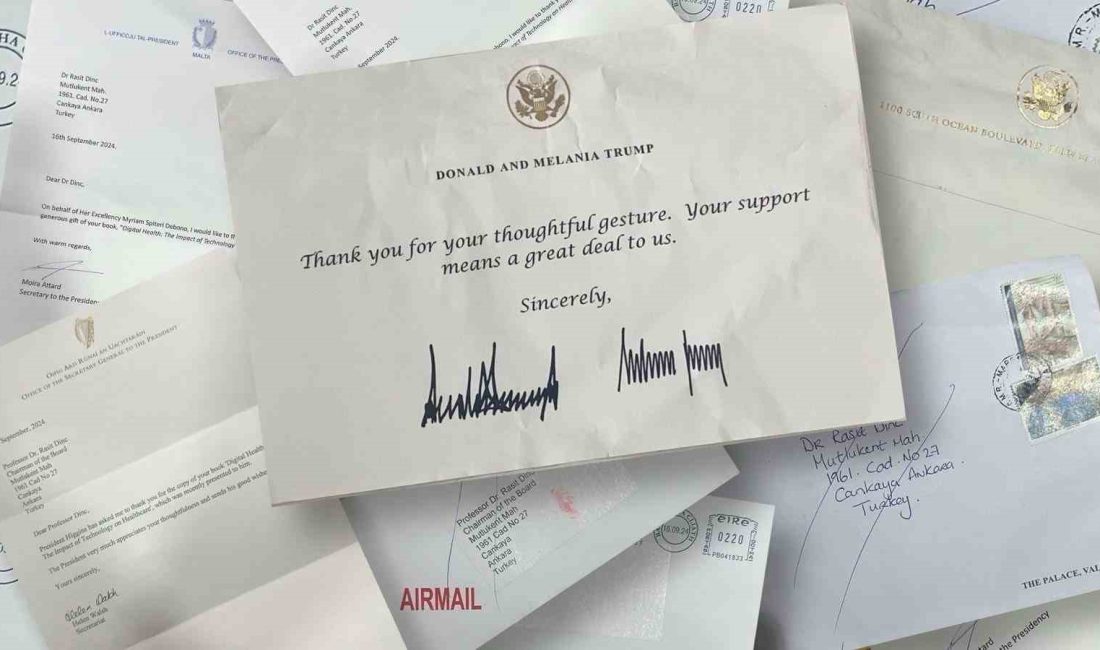 L-UFFIĊĊJU TAL-PRESIDENT
MALTA
OFFICE OF THE
Dr Rasit Dinc
Mutlukent Mah.
1961. Cad. No.27
Cankaya Ankara
Turkey
16th September 2024.
Dear Dr Dinc,
On behalf of Her Excellency Myriam Spiteri Debono, I would like to
generous gift of your book, "Digital Health: The Impact of Technology
With warm regards,
Moira Attard
Secretary to the
Dr Rasit Dinc
Mutlukent Mah.
1961. Cad. No.27
Cankaya Ankara
Turkey
September 2024.
I would like to thank
of Technology on
0220
DONALD AND MELANIA TRUMP
Thank you for your thoughtful gesture. Your support
means a great deal to us.
Sincerely,
1100 SOUTH OCEAN BOULEVARD,
OIFIG ARD RÚNAÍ AN UACHTARÁIN
OFFICE OF THE SECRETARY GENERAL TO THE PRESIDENT
September, 2024
Professor Dr. Rasit Dinc
Chairman of the Board
Mutlukent Mah
1961 Cad No 27
Cankaya
Ankara
Turkey
Dear Professor Dinc,
President Higgins has asked me to thank you for the copy of your book 'Digital Health
The Impact of Technology on Healthcare', which was recently presented to him.
The President very much appreciates your thoughtfulness and sends his good wishes
Yours sincerely,
Helen Walsh
Secretariat
Professor Dr. Rasit Dinc
Chairman of the Board
Mutlukent Mah
1961 Cad No 27
Cankaya
Ankara
Turkey
AIRMAIL
éire
0220
PB041833
Dr Rasit Dinc
Mutlukent Mah.
1961. Cad. No 27
Cankaya Ankara.
Turkey.
THE PALACE,
the Presidency